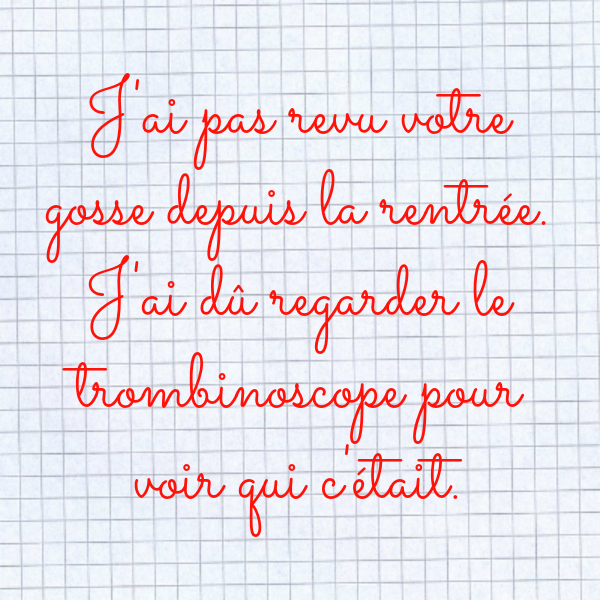 J'ai pas revu votre
gosse depuis la rentrée.
J'ai dû regarder le
trombinoscope pour
voir qui c'était.